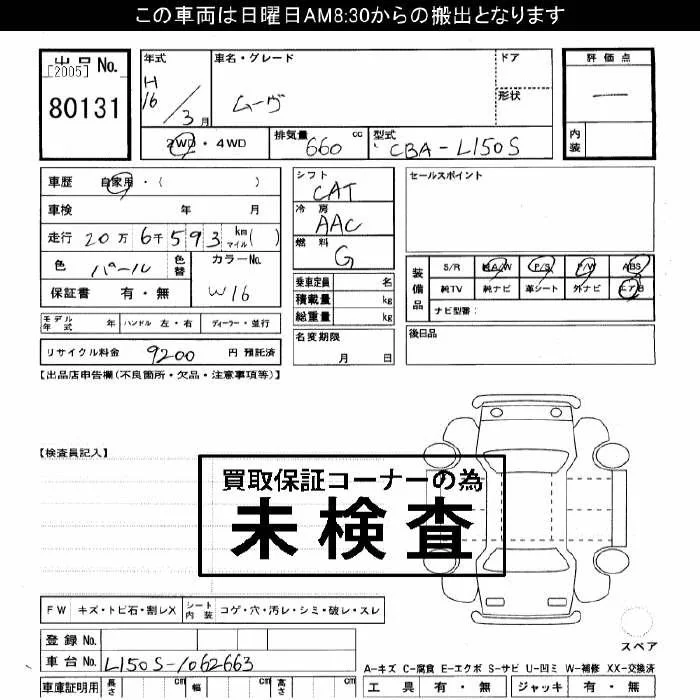 この車両は日曜日AM8:30からの搬出となります
出品 No.
[2005]
80131
年式
H
16 / 3 月
車名・グレード
ムーヴ
ドア
形状
評価点
—
内装
2WD ・ 4WD
排気量 660 cc
型式 CBA-L150S
車歴 自家用 ・ ( )
車検 年 月
走行 20 万 6 千 5 9 3 km マイル ( )
色 パール 色替 カラーNo. W16
保証書 有 ・ 無
シフト
CAT
冷房
AAC
燃料
G
乗車定員 名
積載量 kg
総重量 kg
セールスポイント
装備品
S/R 純A/W P/S P/W ABS
純TV 純ナビ 革シート 外ナビ エアB
ナビ型番:
モデル年式 年 ハンドル 左・右 ディーラー・並行
リサイクル料金 9200 円 預託済
名変期限
月 日
後日品
【出品店申告欄(不良箇所・欠品・注意事項等)】
【検査員記入】
買取保証コーナーの為
未検査
FW キズ・トビ石・割レX シート内装 コゲ・穴・汚レ・シミ・破レ・スレ
登録 No.
車台 No. L150S-1062663
スペア
A-キズ C-腐食 E-エクボ S-サビ U-凹ミ W-補修 XX-交換済
車庫証明用 長さ cm 幅 cm 高さ cm
工具 有・無 ジャッキ 有・無